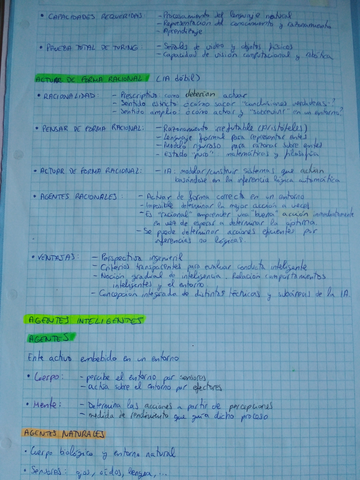 • CAPACIDADES REQUERIDAS: - Procesamiento del lenguaje natural
- Representación del conocimiento y razonamiento
- Aprendizaje
• PRUEBA TOTAL DE TURING: - Señales de vídeo y objetos físicos
- Capacidad de visión computacional y robótica
ACTUAR DE FORMA RACIONAL: (IA débil)
• RACIONALIDAD - Prescriptiva como deberían actuar
- Sentido estricto: cómo sacar "conclusiones
- Sentido amplio: cómo actuar y "sobrevivir" en un entorno
• PENSAR DE FORMA RACIONAL: - Razonamiento irrefutable (Aristóteles)
- Lenguaje formal para representar
- para razonar sobre
- Estudio puro matemáticas y filosofía
• ACTUAR DE FORMA RACIONAL: - IA: modelar/construir sistemas que actúan
basándose en la inferencia lógica automática
• AGENTES RACIONALES - Actuar de forma correcta en un entorno
- Imposible determinar la mejor acción a veces
- Es "racional" emprender una "buena" acción
en vez de esperar a determinar la óptima
- Se puede determinar acciones eficientes por
inferencias no lógicas
• VENTAJAS - Perspectiva ingenieril
- Criterios transparentes para evaluar conducta inteligente
- Noción gradual de inteligencia. Relación comportamientos
inteligentes y el entorno
- Concepción integrada de distintas técnicas y subáreas de la IA
AGENTES INTELIGENTES
AGENTES
Ente activo embebido en un entorno
• Cuerpo: - percibe el entorno por sensores
- actúa sobre el entorno por efectores
• Mente: - Determina las acciones a partir de percepciones
- medida de rendimiento que guía dicho proceso
AGENTES NATURALES
• Cuerpo biológico y entorno natural
• Sensores: ojos, oídos, lengua, ...